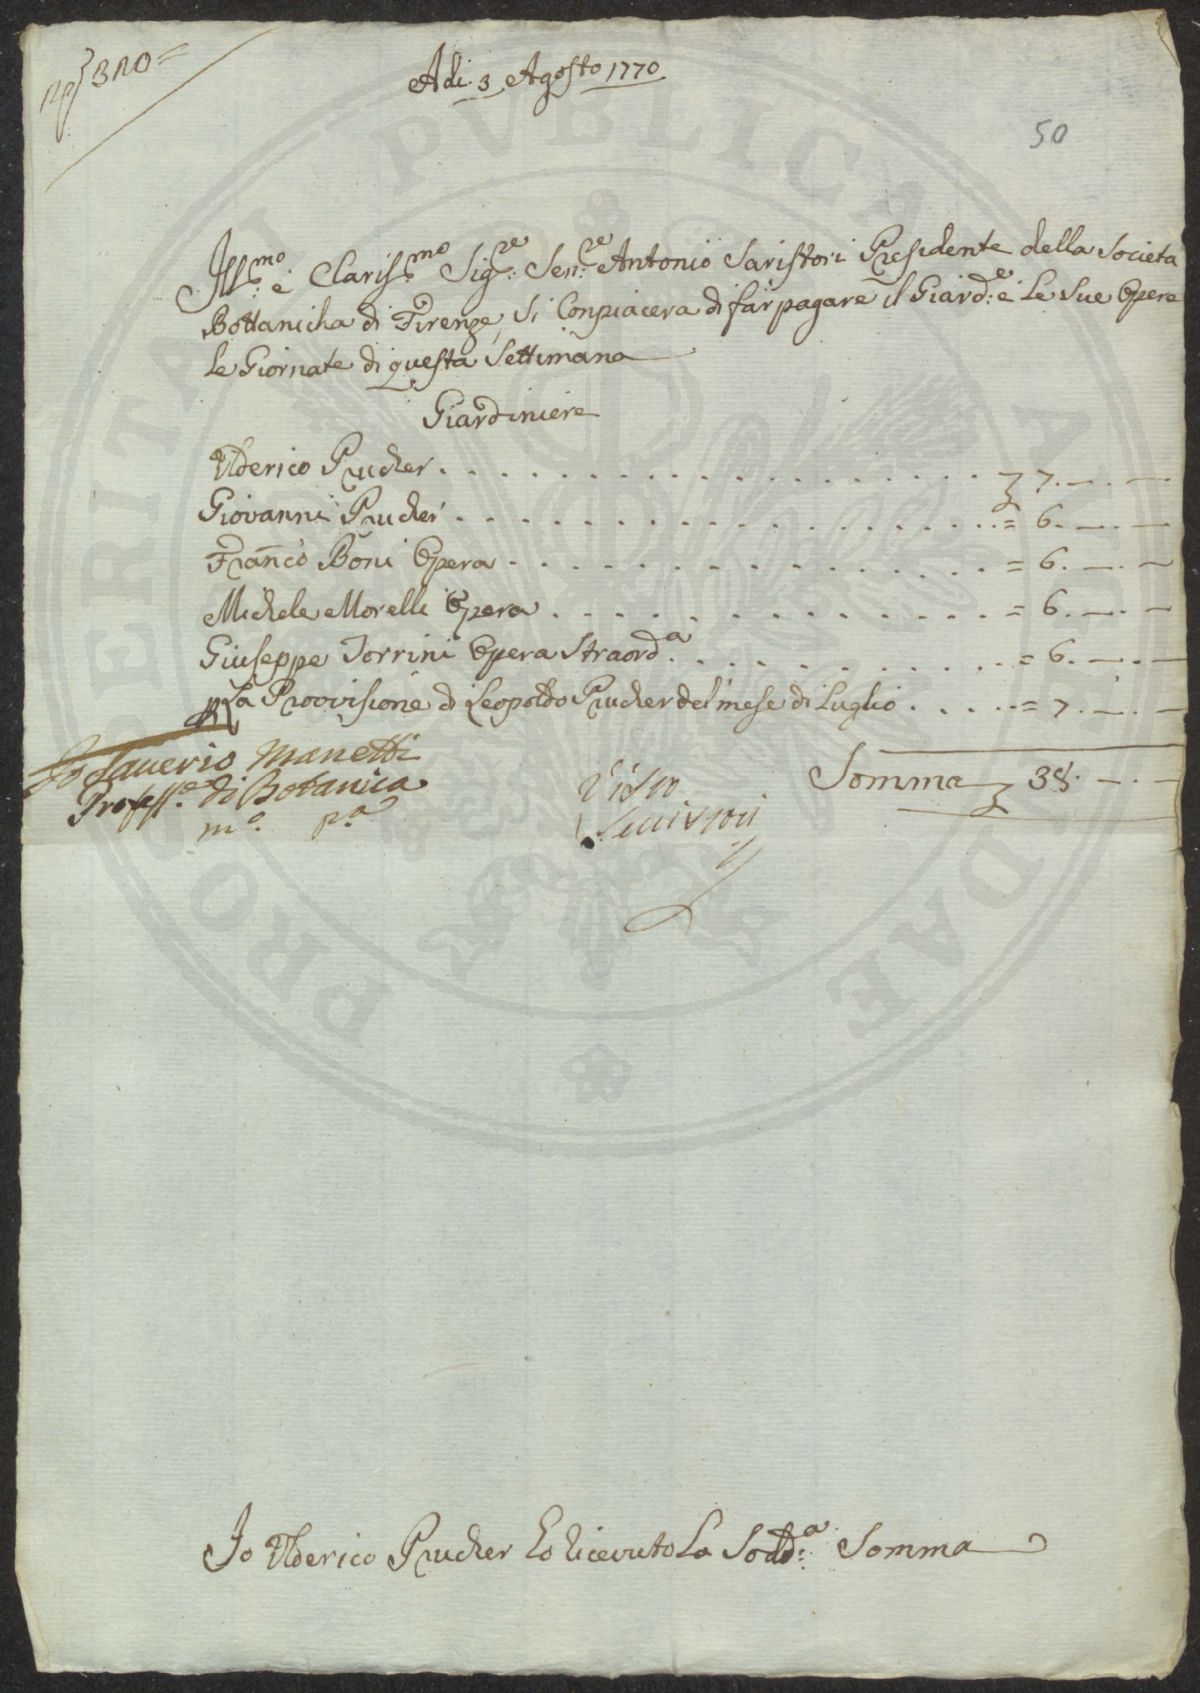 Adi. 3. Agosto 1770
50
Ill.mo e Claris.mo Sig.re Sen.re Antonio Saristori Presidente della Societa
Bottanicha di Firenze, Si Conpiacera di far pagare il Giard.e e Le Sue Opere
Le Giornate di questa Settimana
Giardiniere
Ulderico Prucker . . . . . . . . . . . . . . . . . . 7. — . —
Giovanni Prucker . . . . . . . . . . . . . . . . . . = 6. — . —
Franco Boni Opera . . . . . . . . . . . . . . . . = 6. — . —
Michele Morelli Opera . . . . . . . . . . . . . . = 6. — . —
Giuseppe Torrini Opera Straord.a . . . . . . . . . . . = 6. — . —
La Provvisione di Leopoldo Prucker del mese di Luglio . . . . . = 7. — . —
Somma 38. — . —
Io Saverio Manetti
Profess.e di Botanica
m.o p.a
Visto
Io Ulderico Prucker ho ricevuto La Sodd.a Somma
PRO
ERITATI
PVBLICAE